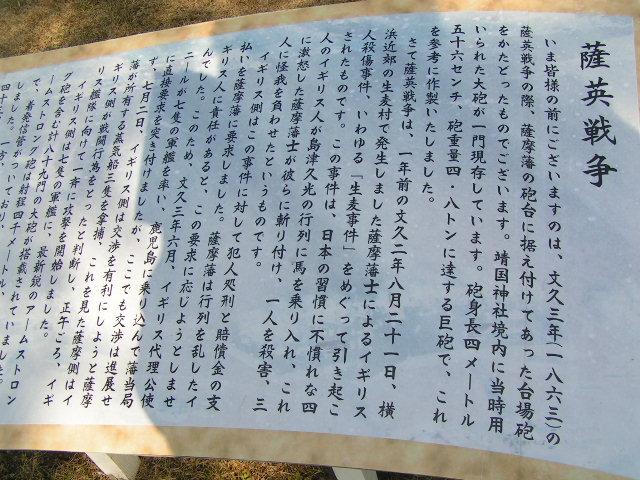 薩英戦争
いま皆様の前にございますのは、文久三年(一八六三)の
薩英戦争の際、薩摩藩の砲台に据え付けてあった台場砲
をかたどったものでございます。靖国神社境内に当時用
いられた大砲が一門現存しています。砲身長四メートル
五十六センチ、砲重量四・八トンに達する巨砲で、これ
を参考に作製いたしました。
さて薩英戦争は、一年前の文久二年八月二十一日、横
浜近郊の生麦村で発生しました薩摩藩士によるイギリス
人殺傷事件、いわゆる「生麦事件」をめぐって引き起こ
されたものです。この事件は、日本の習慣に不慣れな四
人のイギリス人が島津久光の行列に馬を乗り入れ、これ
に激怒した薩摩藩士が彼らに斬り付け、一人を殺害、三
人に怪我を負わせたというものです。
イギリス側はこの事件に対して犯人処刑と賠償金の支
払いを薩摩藩に要求しました。薩摩藩は行列を乱したイ
ギリス人に責任があると、この要求に応じようとしませ
んでした。このため、文久三年六月、イギリス代理公使
ニールが七隻の軍艦を率い、鹿児島に乗り込んで藩当局
に直接要求を突き付けましたが、ここでも交渉は進展せ
ず、七月二日、イギリス側は交渉を有利にしようと薩摩
藩が所有する蒸気船三隻を拿捕、これを見た薩摩側はイ
ギリス側が戦闘行為をとったと判断し、正午ごろ、イギ
リス艦隊に向けて一斉に攻撃を開始しました。
イギリス側は七隻の軍艦に、最新鋭のアームストロン
グ砲を含む計八十九門の大砲が搭載されていました。
ームストロング砲は射程四千メートル
で、着発信管がついており、
しました。一方、